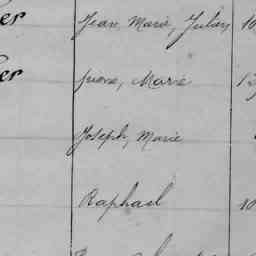 er Jean Marie, Julien 10
er Marie
Joseph, Marie
Raphael 10